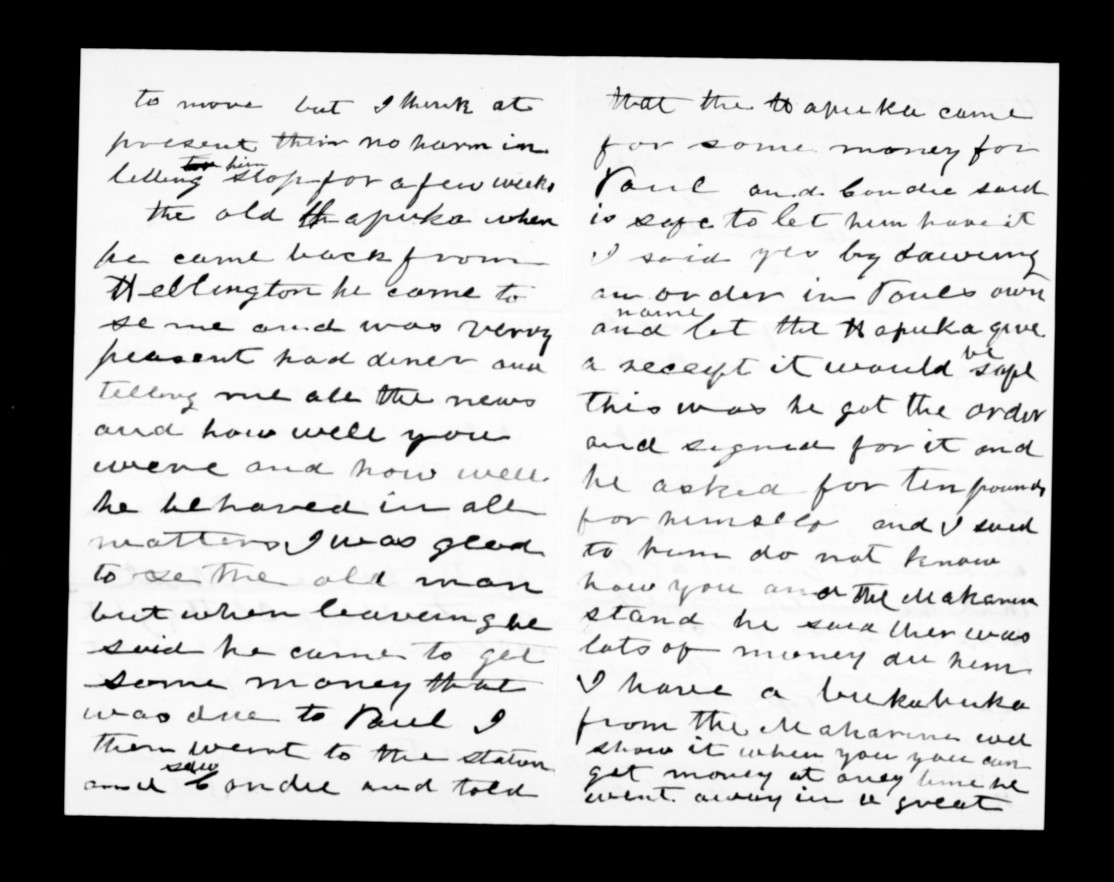 to move but I think at
present their no harm in
letting him stop for a few weeks
the old Hapuka when
he came back from
Wellington he came to
se me and was verry
peasent had diner and
telling me all the news
and how well you
were and how well
he behaved in all
matters I was glad
to se the old man
but when leaveing he
said he came to get
some money that
was due to Paul I
then went to the station
and saw Condie and told
that the Hapuka came
for some money for
Paul and Condie said
is safe to let him have it
I said yes by drawing
an order in Pauls own
name
and let the Hapuka give
a receipt it would be safe
this was he got the order
and signed for it and
he asked for ten pounds
for himself and I said
to him do not know
how you and the McKarmen
stand he said ther was
lots of money du him
I have a bukabuka
from the McKarmen well
show it when you you can
get money at aney time he
went away in a great